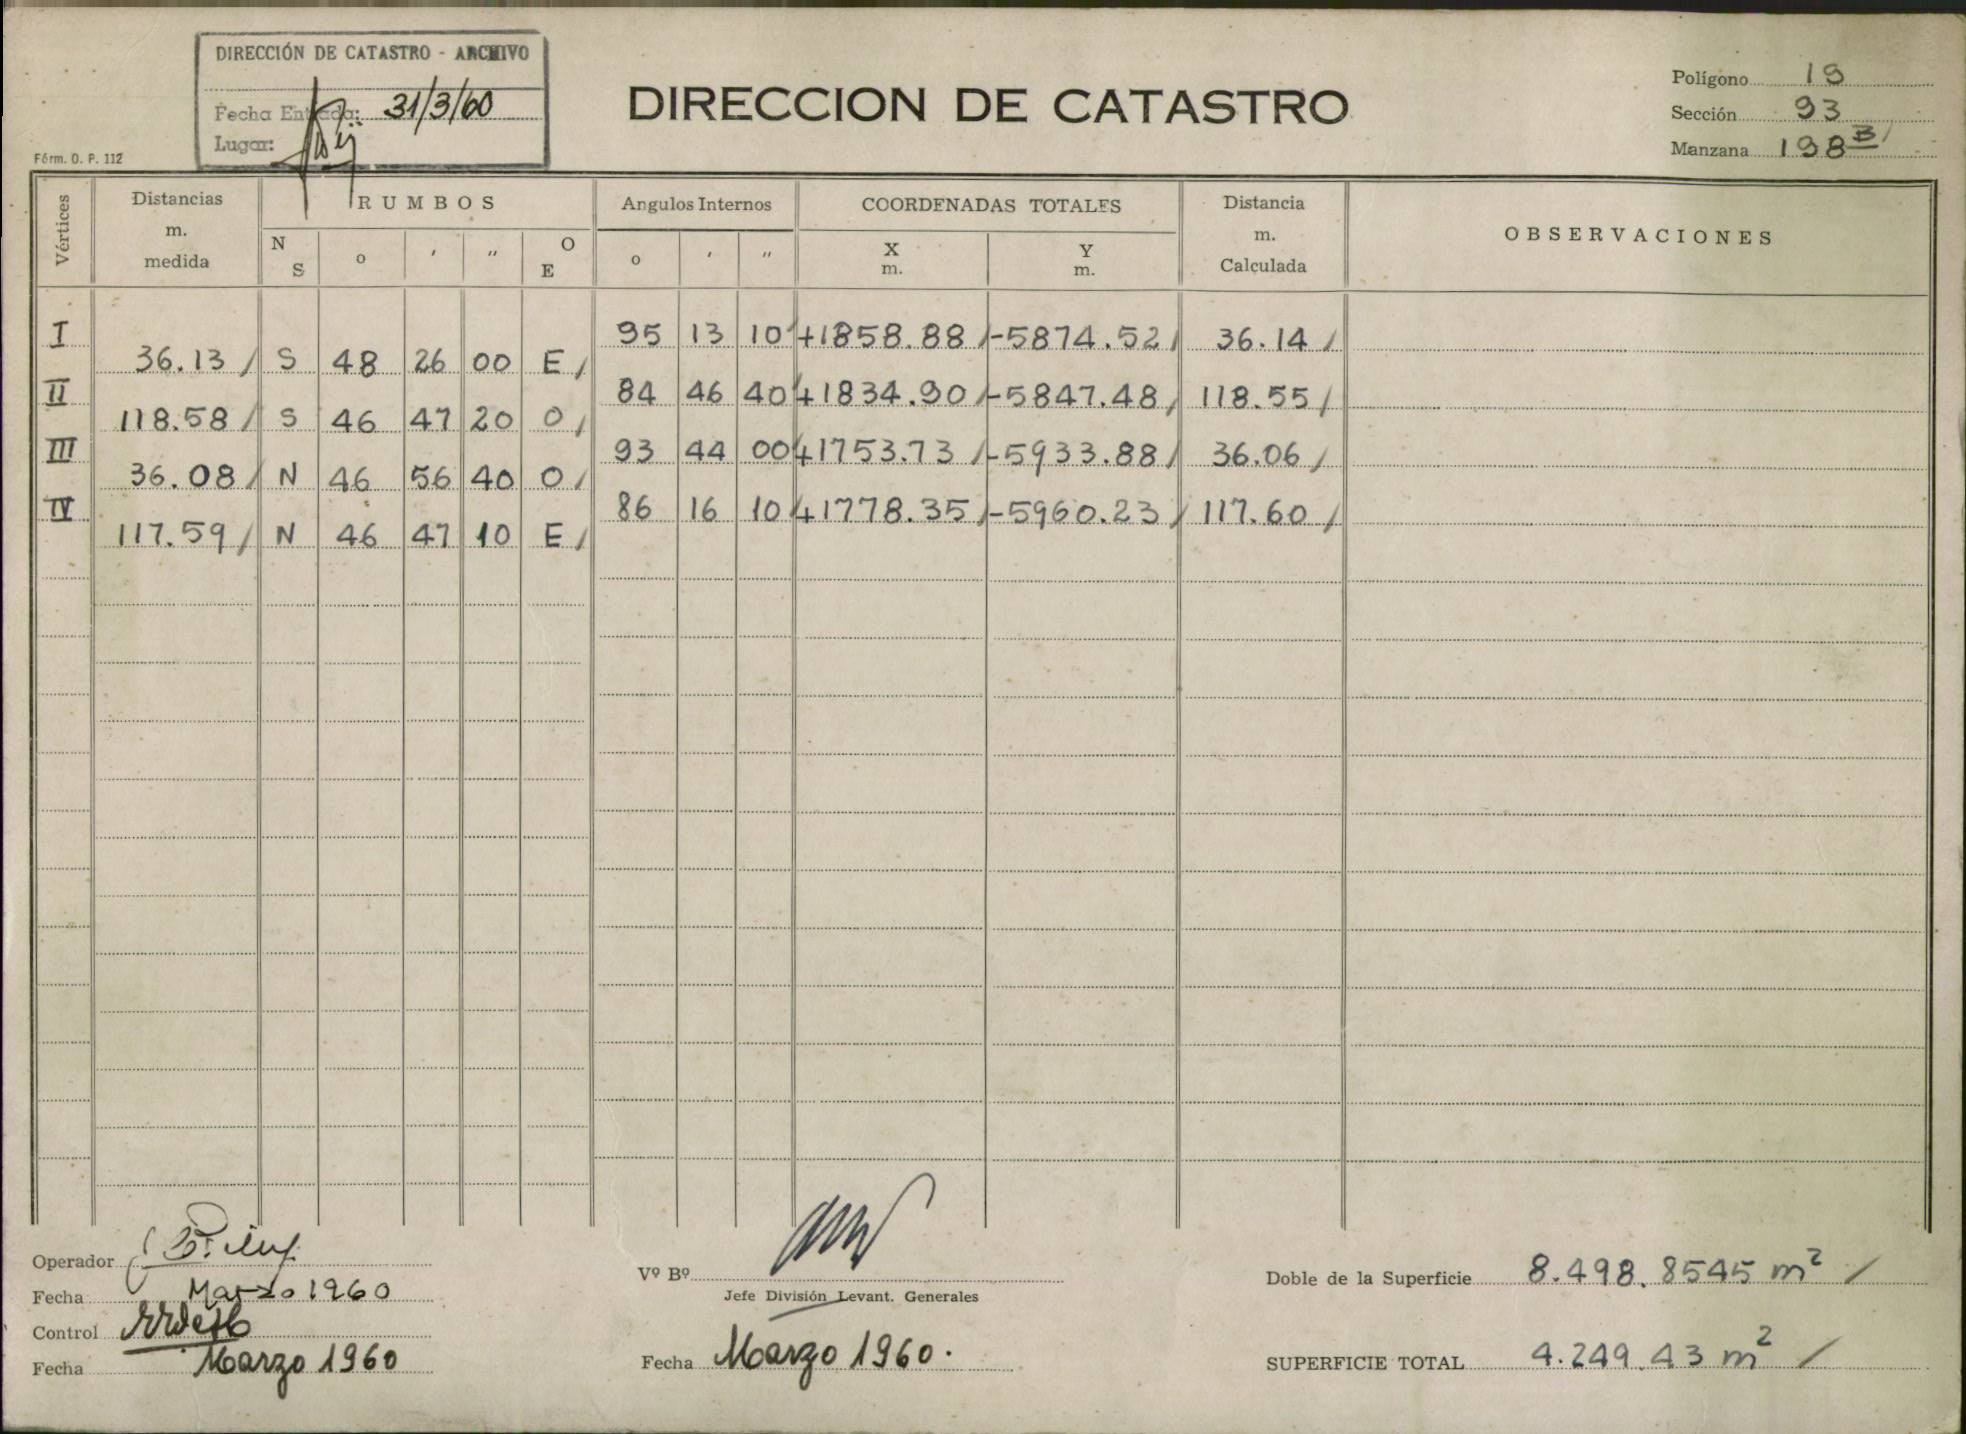 DIRECCIÓN DE CATASTRO - ARCHIVO
Fecha Entrada: 31/3/60
Lugar:
Fórm. O. P. 112
DIRECCION DE CATASTRO
Polígono 19
Sección 93
Manzana 198 B
Vértices Distancias m. medida RUMBOS Angulos Internos COORDENADAS TOTALES Distancia m. Calculada OBSERVACIONES
N S o ' " O E o ' " X m. Y m.
I 95 13 10 +1858.88 -5874.52 36.14
36.13 S 48 26 00 E
II 84 46 40 +1834.90 -5847.48 118.55
118.58 S 46 47 20 O
III 93 44 00 +1753.73 -5933.88 36.06
36.08 N 46 56 40 O
IV 86 16 10 +1778.35 -5960.23 117.60
117.59 N 46 47 10 E
Operador
Fecha Marzo 1960
Control
Fecha Marzo 1960
Vº Bº
Jefe División Levant. Generales
Fecha Marzo 1960.
Doble de la Superficie 8.498.8545 m²
SUPERFICIE TOTAL 4.249.43 m²